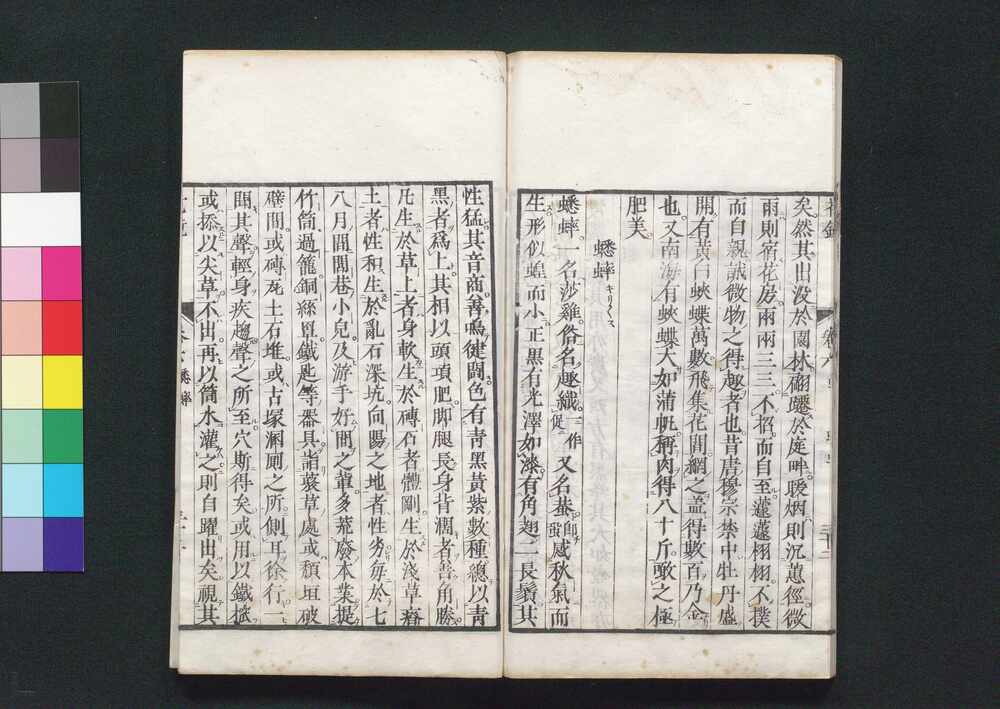 矣然其出没於園林翩躚於庭畔暖烟則沉蕙徑微
雨則宿花房兩兩三三不招而自至蘧蘧栩栩不撲
而自親誠微物之得趣者也昔唐穆宗禁中牡丹盛
開有黄白蛺蝶萬數飛集花間網之盖得數百乃金
也又南海有蛺蝶大如蒲帆稱肉得八十斤噉之極
肥美
蟋蟀キリ〱ス
蟋蟀一名莎雞俗名趣織一作促又名蛬即蛩感秋氣而
生形似蝗而小正黒有光澤如漆有角翅二長鬚其
性猛其音商善鳴健鬪色有青黒黄紫數種總以青
黒者爲上其相以頭項肥脚腿長身背濶者善角勝
凡生於草上者身軟生於磚石者體剛生於淺草瘠
土者性和生於亂石深坑向陽之地者性劣毎於七
八月間閭巷小兒及游手好閒之輩多荒廢本業提
竹筒過籠銅絲罩鐵匙等器具詣叢草處或頽垣破
壁間或磚瓦土石堆或古塚溷厠之所側耳徐行一
聞其聲輕身疾趨聲之所至穴斯得矣或用以鐵搖
或掭以尖草不出再以筒水灌之則自躍出矣視其
卷六 蟋蟀